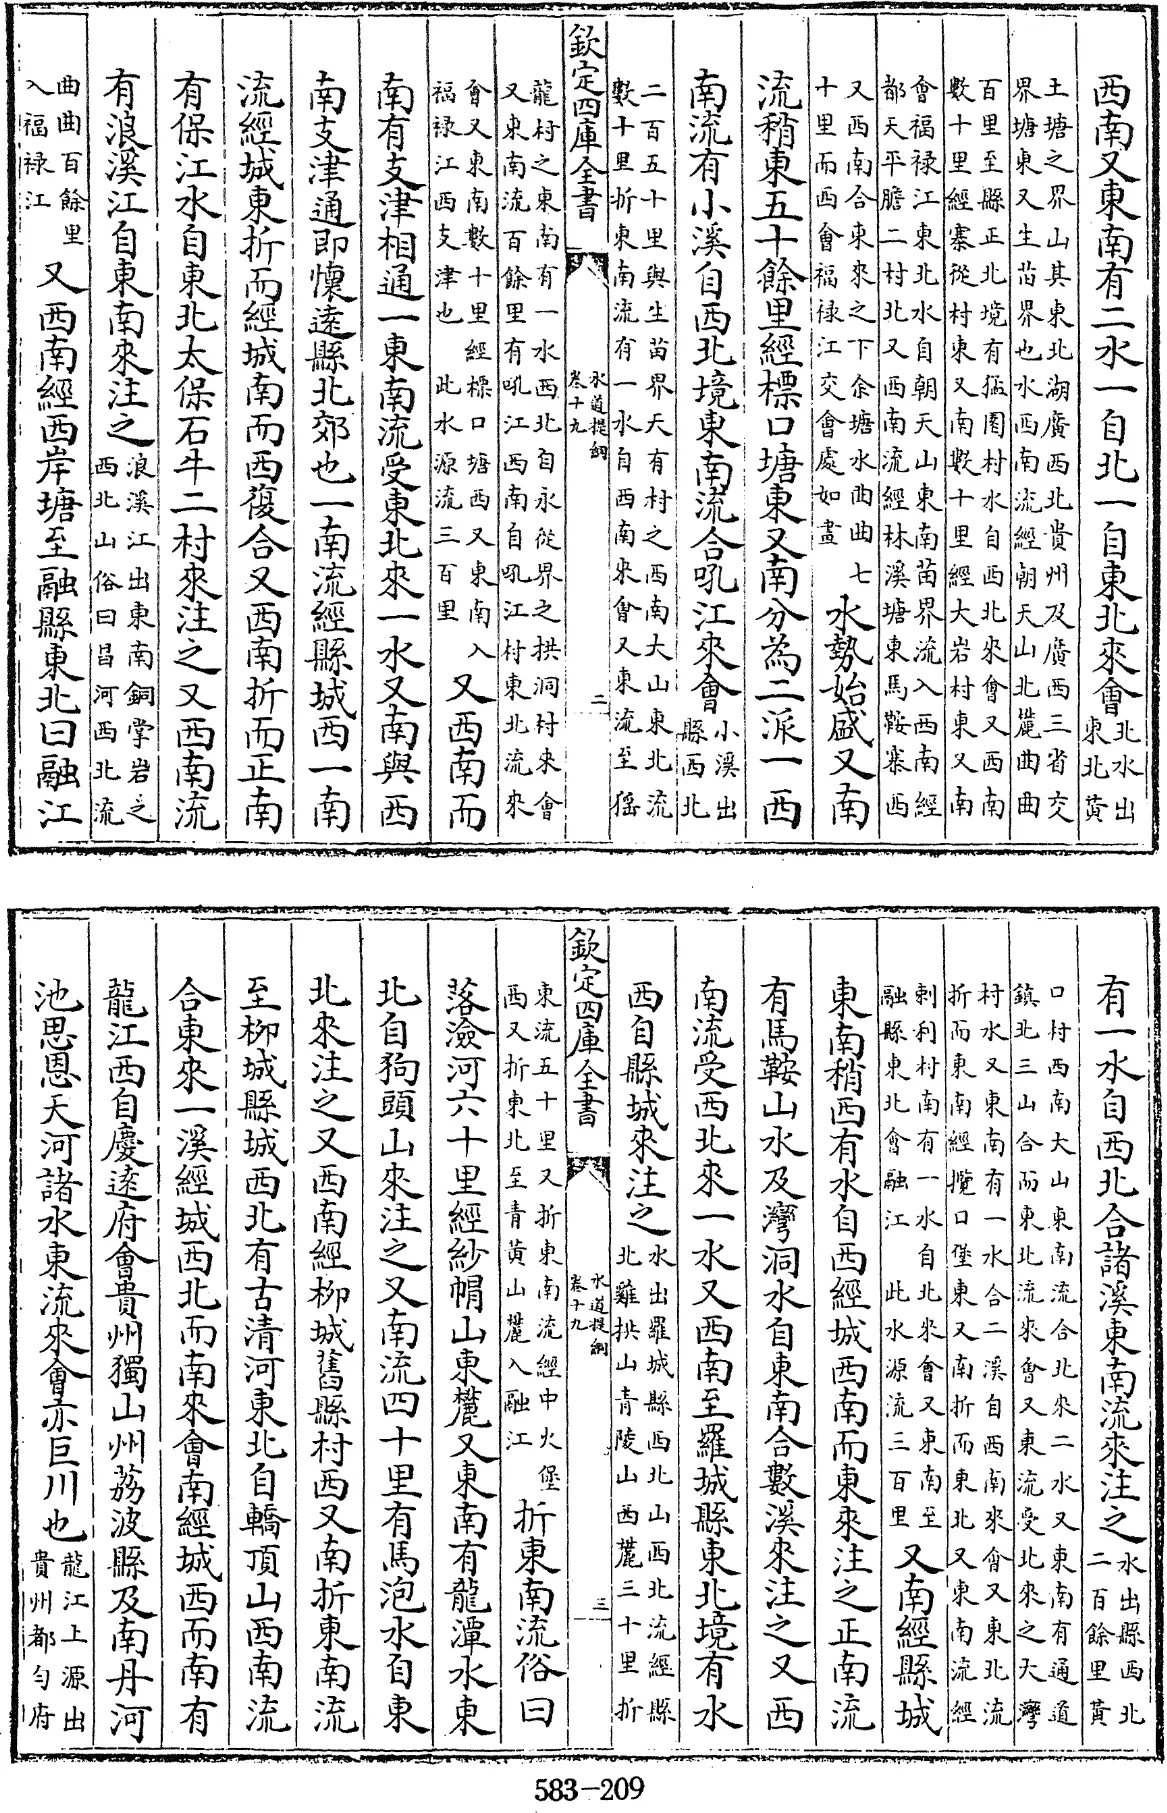 西南又東南有二水一自北一自東北來會北水出東北黄
土塘之界山其東北湖廣西北貴州及廣西三省交
界塘東又生苗界也水西南流經朝天山北麓曲曲
百里至縣正北境有猛團村水自西北來會又西南
數十里經寨從村東又南數十里經大岩村東又南
會福禄江東北水自朝天山東南苗界流入西南經
都天平膽二村北又西南流經林溪塘東馬鞍寨西
又西南合東來之下佘塘水曲曲七
十里而西會福禄江交會處如畫
水勢始盛又南
流稍東五十餘里經標口塘東又南分為二派一西
南流有小溪自西北境東南流合吼江來會小溪出縣西北
二百五十里與生苗界天有村之西南大山東北流
數十里折東南流有一水自西南來會又東流至猺
欽定四庫全書
水道提綱
卷十九
二
龍村之東南有一水西北自永從界之拱洞村來會
又東南流百餘里有吼江西南自吼江村東北流來
會又東南數十里經標口塘西又東南入
福禄江西支津也此水源流三百里
又西南而
南有支津相通一東南流受東北來一水又南與西
南支津通即懷遠縣北郊也一南流經縣城西一南
流經城東折而經城南而西復合又西南折而正南
有保江水自東北太保石牛二村來注之又西南流
有浪溪江自東南來注之浪溪江出東南銅掌岩之西北山俗曰昌河西北流
曲曲百餘里
入福禄江
又西南經西岸塘至融縣東北曰融江
有一水自西北合諸溪東南流來注之水出縣西北二百餘里黄
口村西南大山東南流合北來二水又東南有通道
鎮北三山合而東北流來會又東流受北來之大灣
村水又東南有一水合二溪自西南來會又東北流
折而東南經攬口堡東又南折而東北又東南流經
剌利村南有一水自北來會又東南至
融縣東北會融江此水源流三百里
又南經縣城
東南稍西有水自西經城西南而東來注之正南流
有馬鞍山水及灣洞水自東南合數溪來注之又西
南流受西北來一水又西南至羅城縣東北境有水
西自縣城來注之水出羅城縣西北山西北流經縣北雞拱山青陵山西麓三十里折
欽定四庫全書
水道提綱
卷十九
三
東流五十里又折東南流經中火堡
西又折東北至青黄山麓入融江
折東南流俗曰
落澰河六十里經紗帽山東麓又東南有龍潭水東
北自狗頭山來注之又南流四十里有馬泡水自東
北來注之又西南經柳城舊縣村西又南折東南流
至柳城縣城西北有古清河東北自轎頂山西南流
合東來一溪經城西北而南來會南經城西而南有
龍江西自慶遠府會貴州獨山州荔波縣及南丹河
池思恩天河諸水東流來會亦巨川也龍江上源出貴州都勻府
583-209